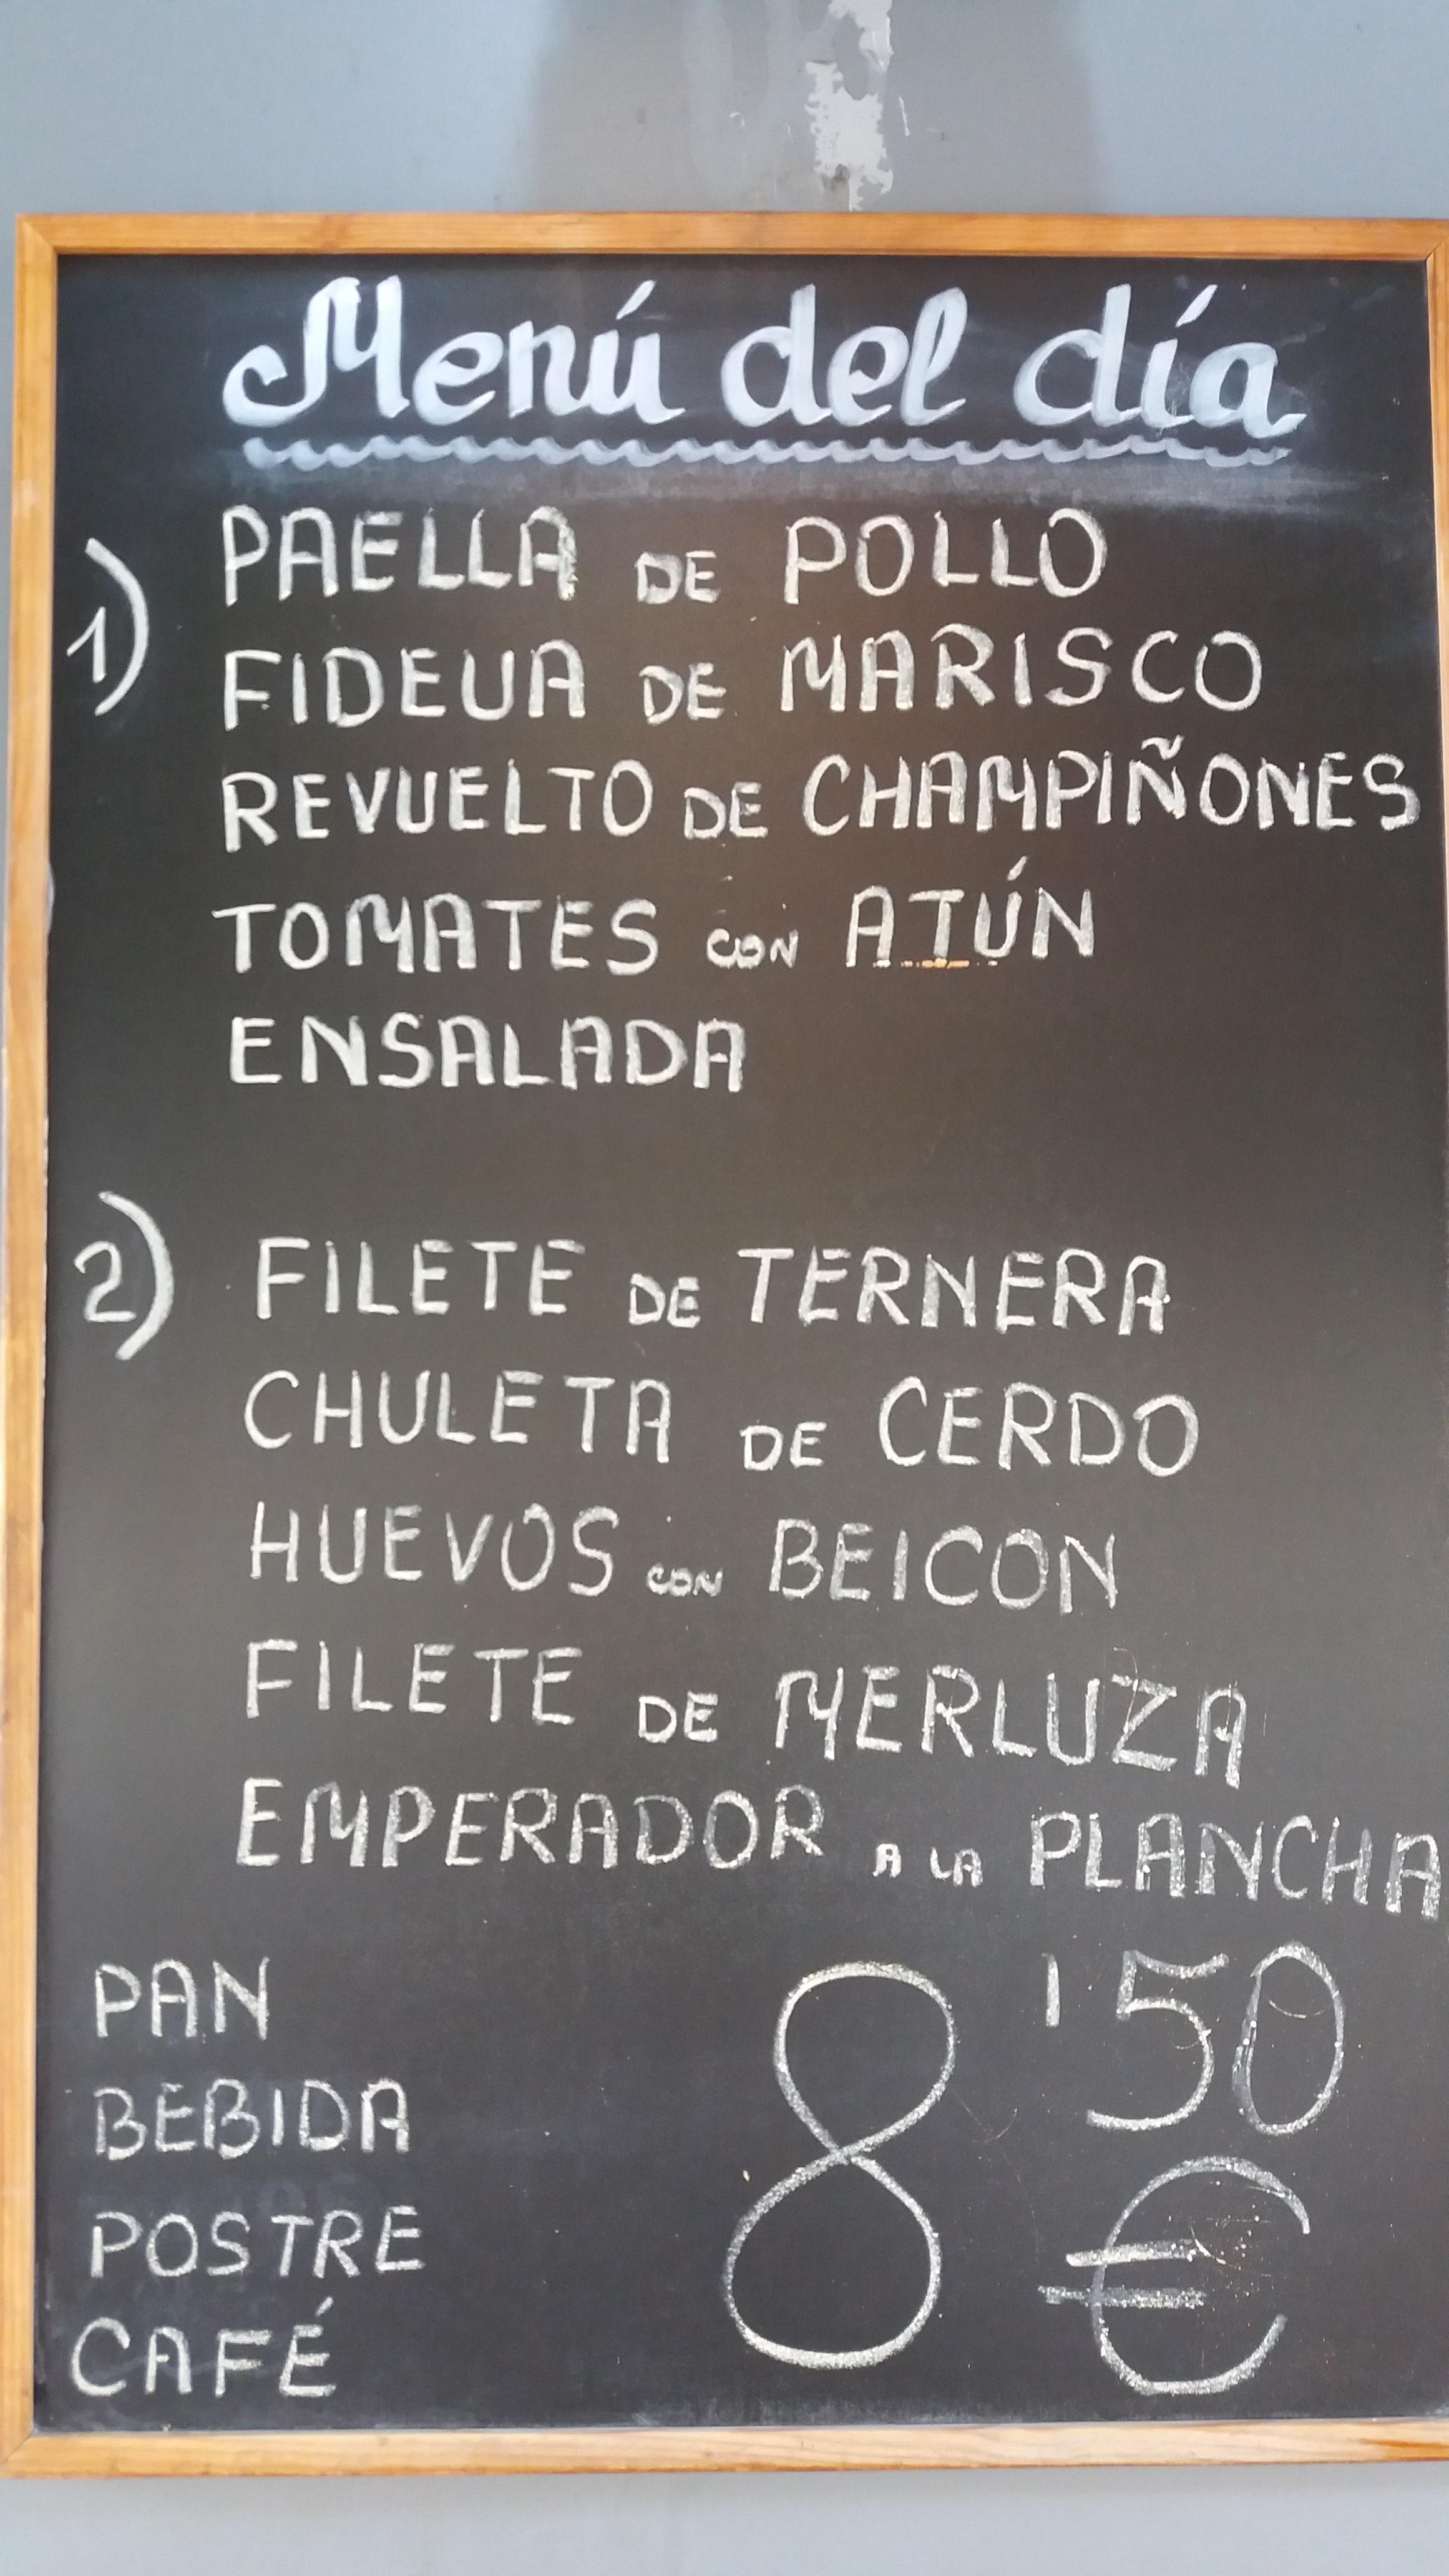 Menú del día
1) PAELLA DE POLLO
FIDEUA DE MARISCO
REVUELTO DE CHAMPIÑONES
TOMATES CON ATÚN
ENSALADA
2) FILETE DE TERNERA
CHULETA DE CERDO
HUEVOS CON BEICON
FILETE DE MERLUZA
EMPERADOR A LA PLANCHA
PAN
BEBIDA
POSTRE
CAFÉ
8'50
€